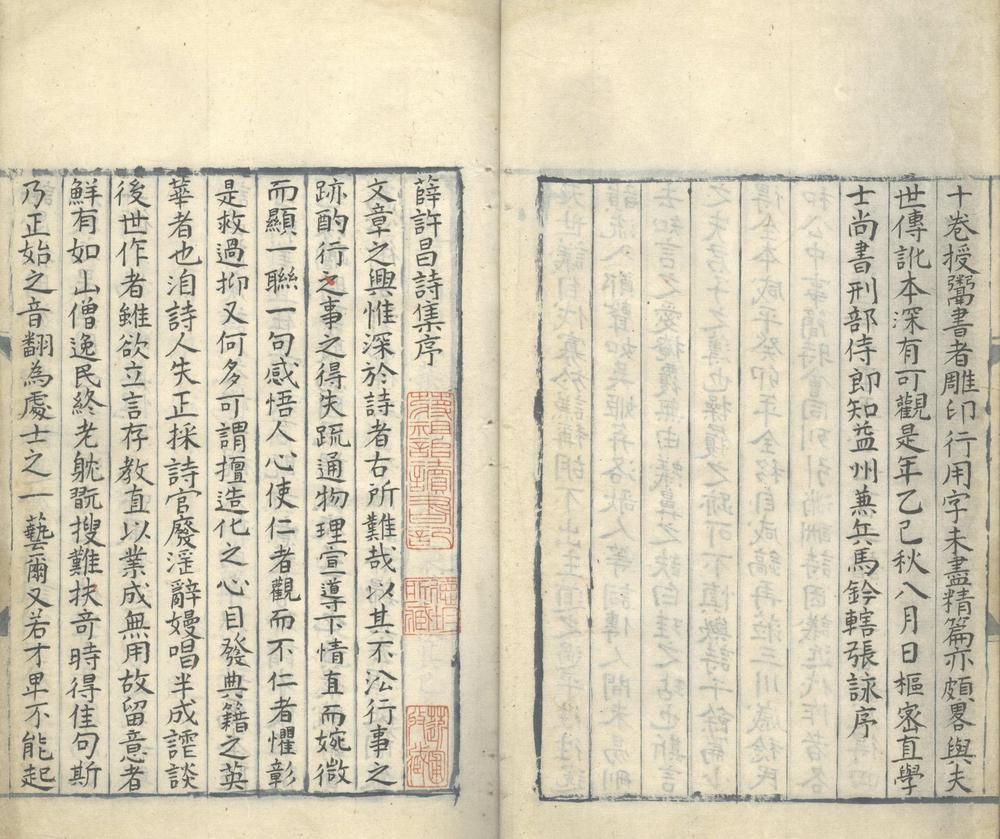 十卷授鬻書者雕印行用字未盡精篇亦頗畧與夫
世傳訛本深有可觀是年乙巳秋八月日樞密直學
士尚書刑部侍郎知益州兼兵馬鈐轄張詠序
薛許昌詩集序
文章之興惟深於詩者古所難哉以其不㳂行事之
跡酌行之事之得失疏通物理宣導下情直而婉微
而顯一聯一句感悟人心使仁者觀而不仁者懼彰
是救過抑又何多可謂擅造化之心目發典籍之英
華者也洎詩人失正採詩官廢淫辭嫚唱半成謔談
後世作者雖欲立言存教直以業成無用故留意者
鮮有如山僧逸民終老躭翫搜難扶奇時得佳句斯
乃正始之音翻為處士之一藝爾又若才卑不能起